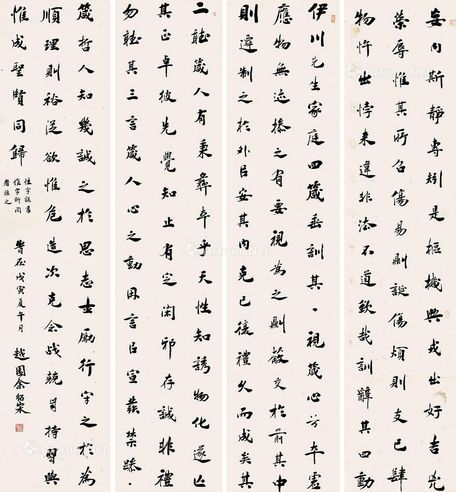 伊川先生家庭四箴垂訓其一視箴心兮本虛
應物無迹操之有要視為之則蔽交於前其中
則遷制之於外以安其內克己復禮久而成矣其
二聽箴人有秉彝本乎天性知誘物化遂亡
其正卓彼先覺知止有定閑邪存誠非禮
勿聽其三言箴人心之動因言以宣發禁躁
妄內斯靜專矧是樞機興戎出好吉凶
榮辱惟其所召傷易則誕傷煩則支己肆
物忤出悖來違非法不道欽哉訓辭其四動
箴哲人知幾誠之於思志士勵行守之於為
順理則裕從欲惟危造次克念戰兢自持習與
惟成聖賢同歸
性字誤書
惟字祈閱
者諒之
戊寅夏午月 越園余紹宋